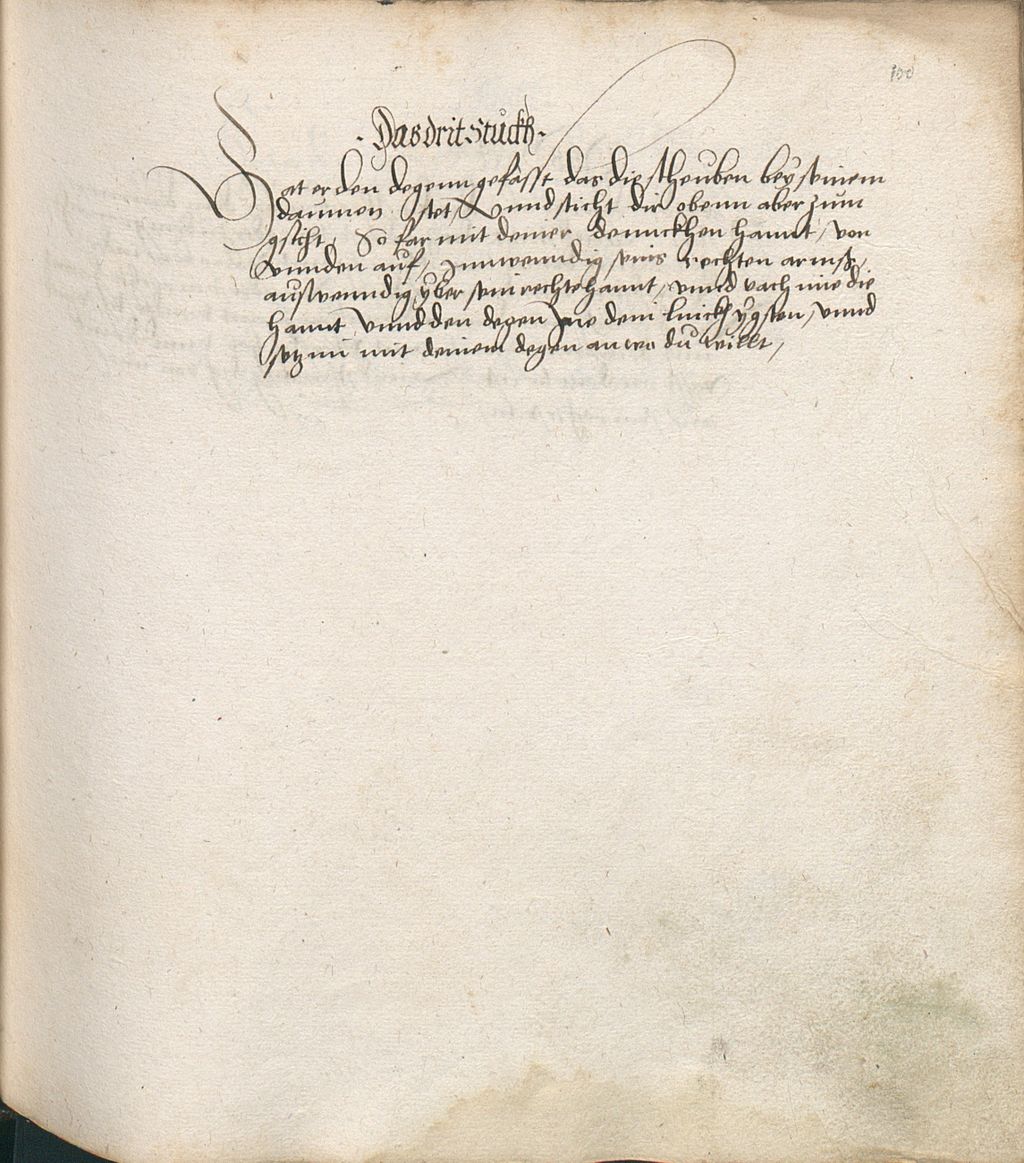 100
· Das drit Stuckh ·
Hat er den degenn gefasst das die scheuben bey seinem
daumen stet, Vnnd sticht dir obenn aber zum
gsicht, So far mit deiner dennckhen hannt, von
Vnnden auf, Innwenndig seins rechten arms,
auswenndig yber sein rechte hannt, vnnd vach ime die
hannt vnnd den degen Inn dein linckh ygsten, vnnd
setz im mit deinem degen an wo du willt,